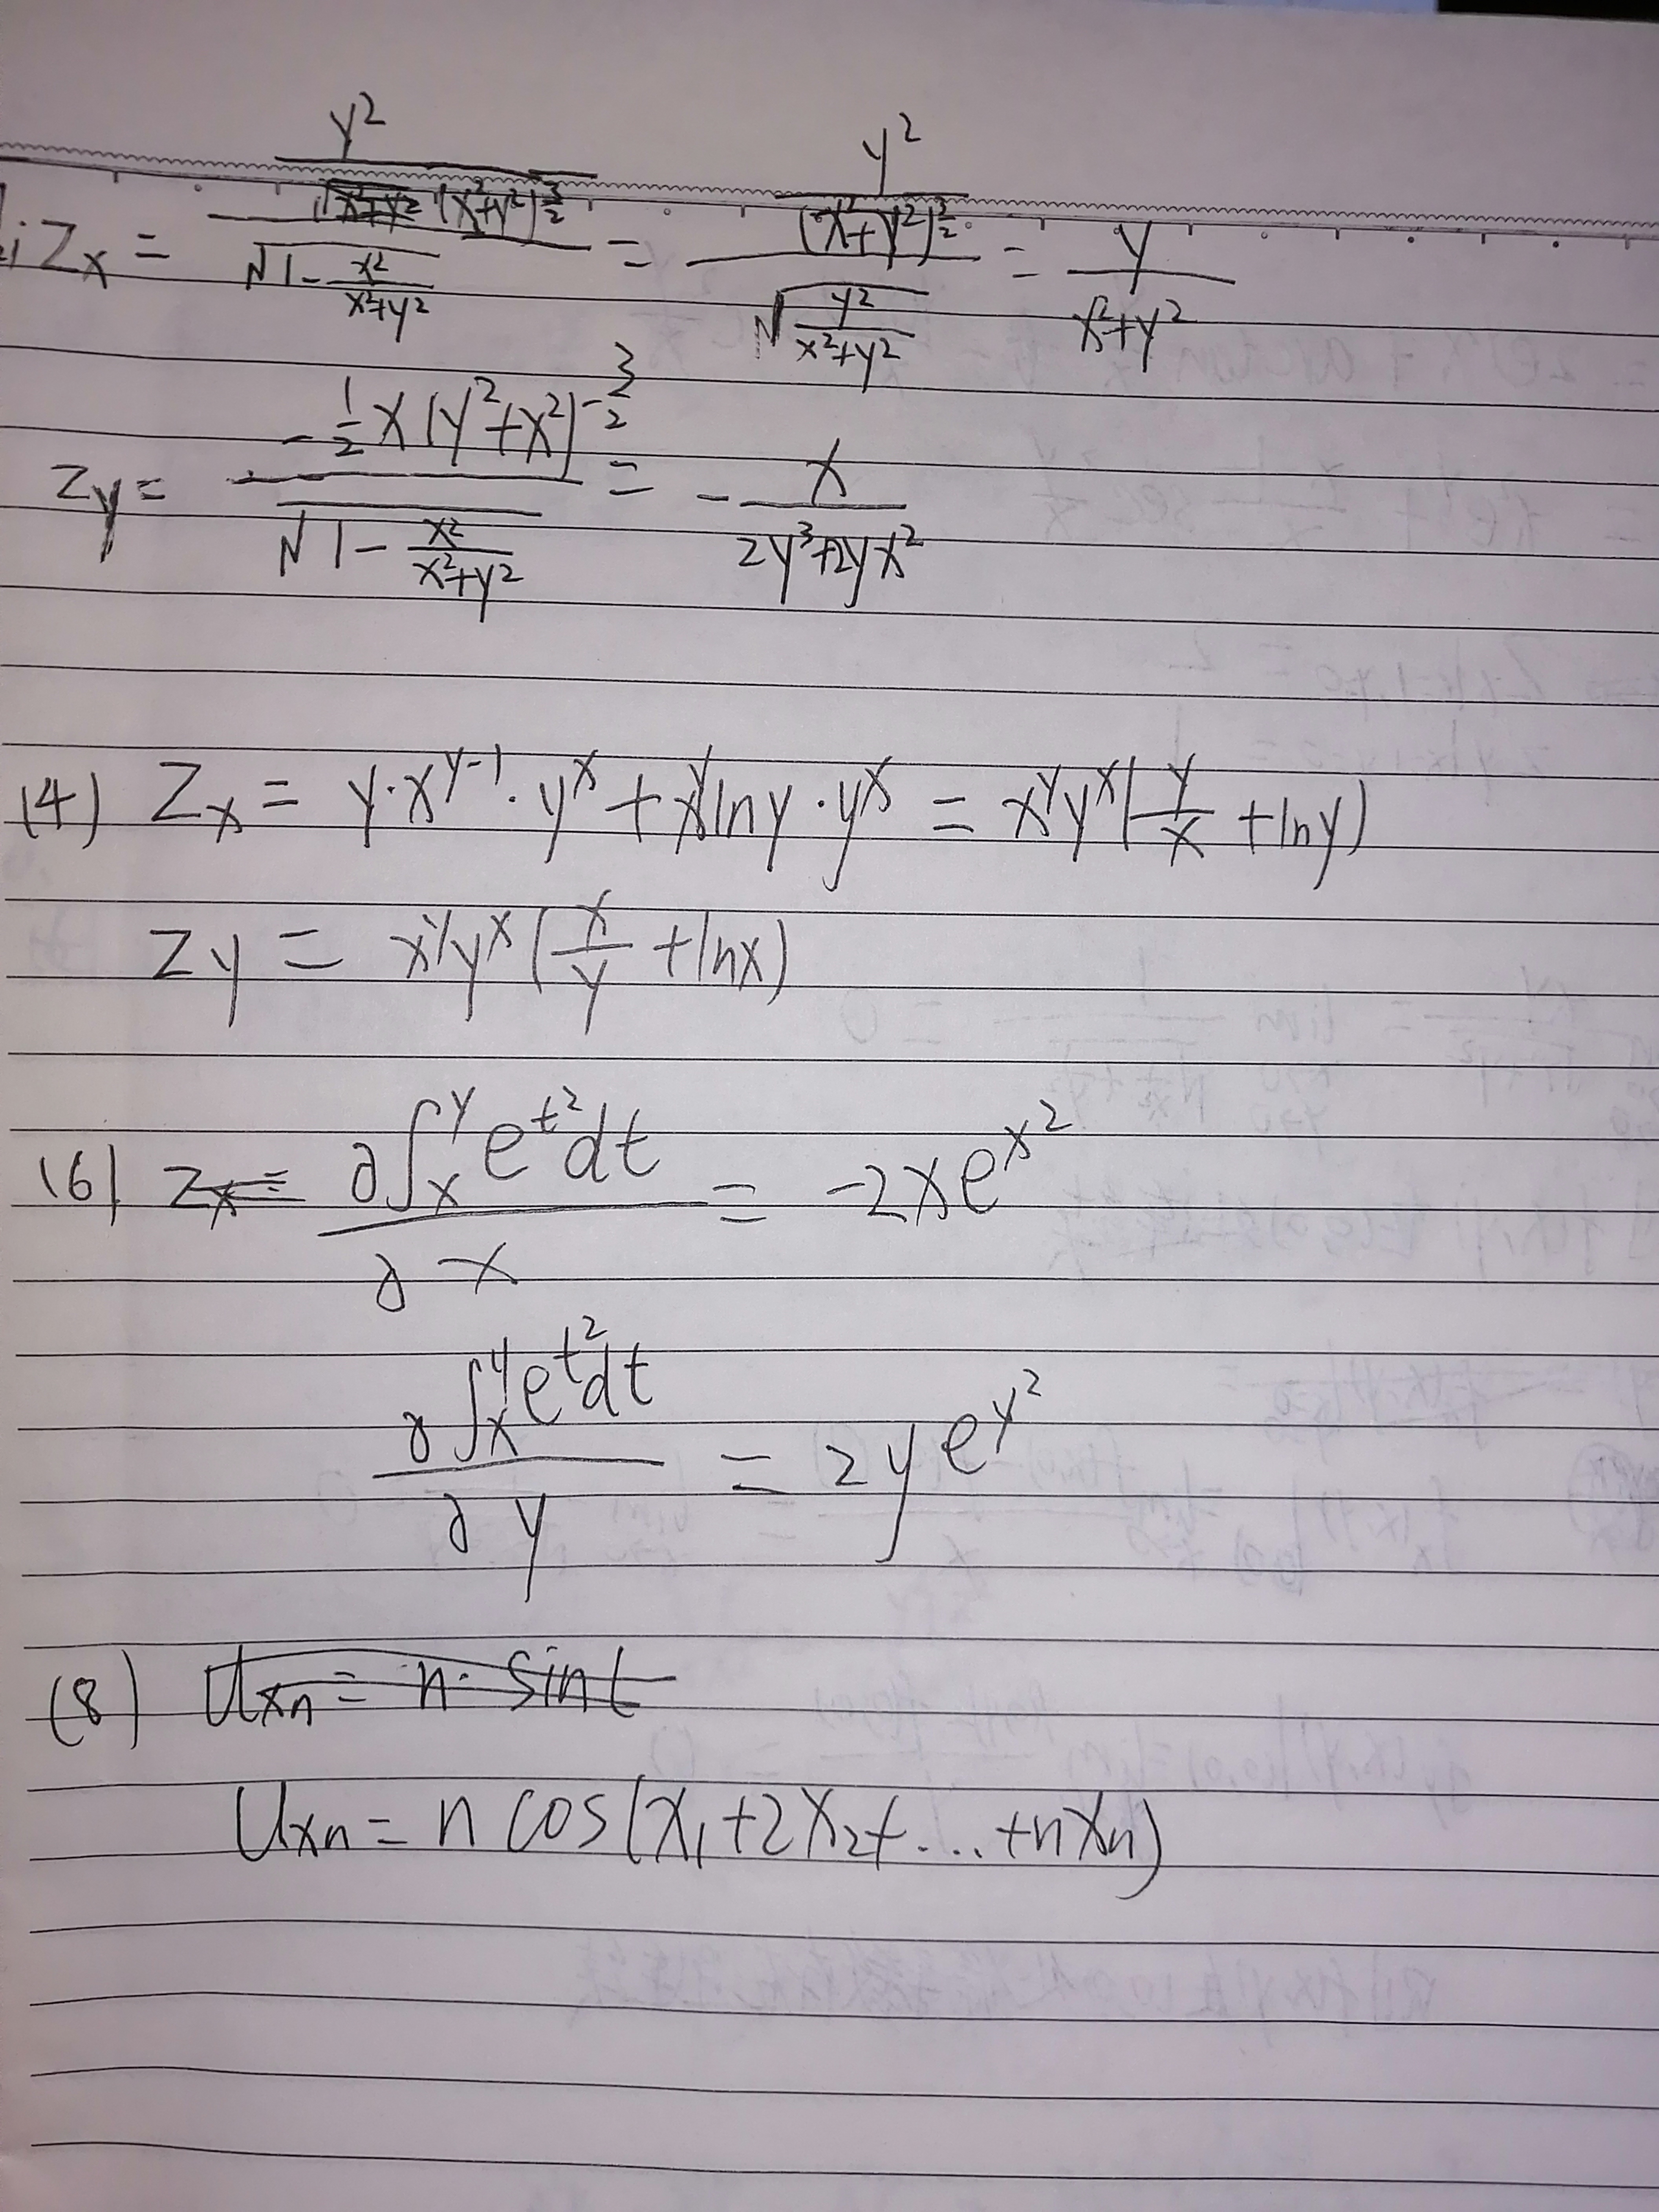 Zx = \frac{\frac{y^2}{(x^2+y^2)^{\frac{3}{2}}}}{\sqrt{1-\frac{x^2}{x^2+y^2}}} = \frac{\frac{y^2}{(x^2+y^2)^{\frac{3}{2}}}}{\sqrt{\frac{y^2}{x^2+y^2}}} = \frac{y}{x^2+y^2}
Zy = \frac{-\frac{1}{2}x(y^2+x^2)^{-\frac{3}{2}}}{\sqrt{1-\frac{x^2}{x^2+y^2}}} = -\frac{x}{2y^3+2yx^2}
(4) Zx = y·x^{y-1}·y^x + x^y lny·y^x = x^y y^x(\frac{y}{x} + lny)
Zy = x^y y^x(\frac{x}{y} + lnx)
(6) Zx = \frac{∂∫_x^y e^{t^2}dt}{∂x} = -2xe^{x^2}
\frac{∂∫_x^y e^{t^2}dt}{∂y} = 2ye^{y^2}
(8) Uxn = n· sint
Uxn = n cos(x_1+2x_2+...+nx_n)